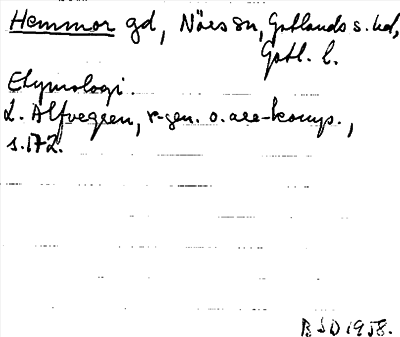 Hemmor gd, Näs sn, Gotlands s. hd,
Gotl. l.
Etymologi.
L. Alfvegren, r-gen. o. are-komp.,
s. 172.
B S D 1958.